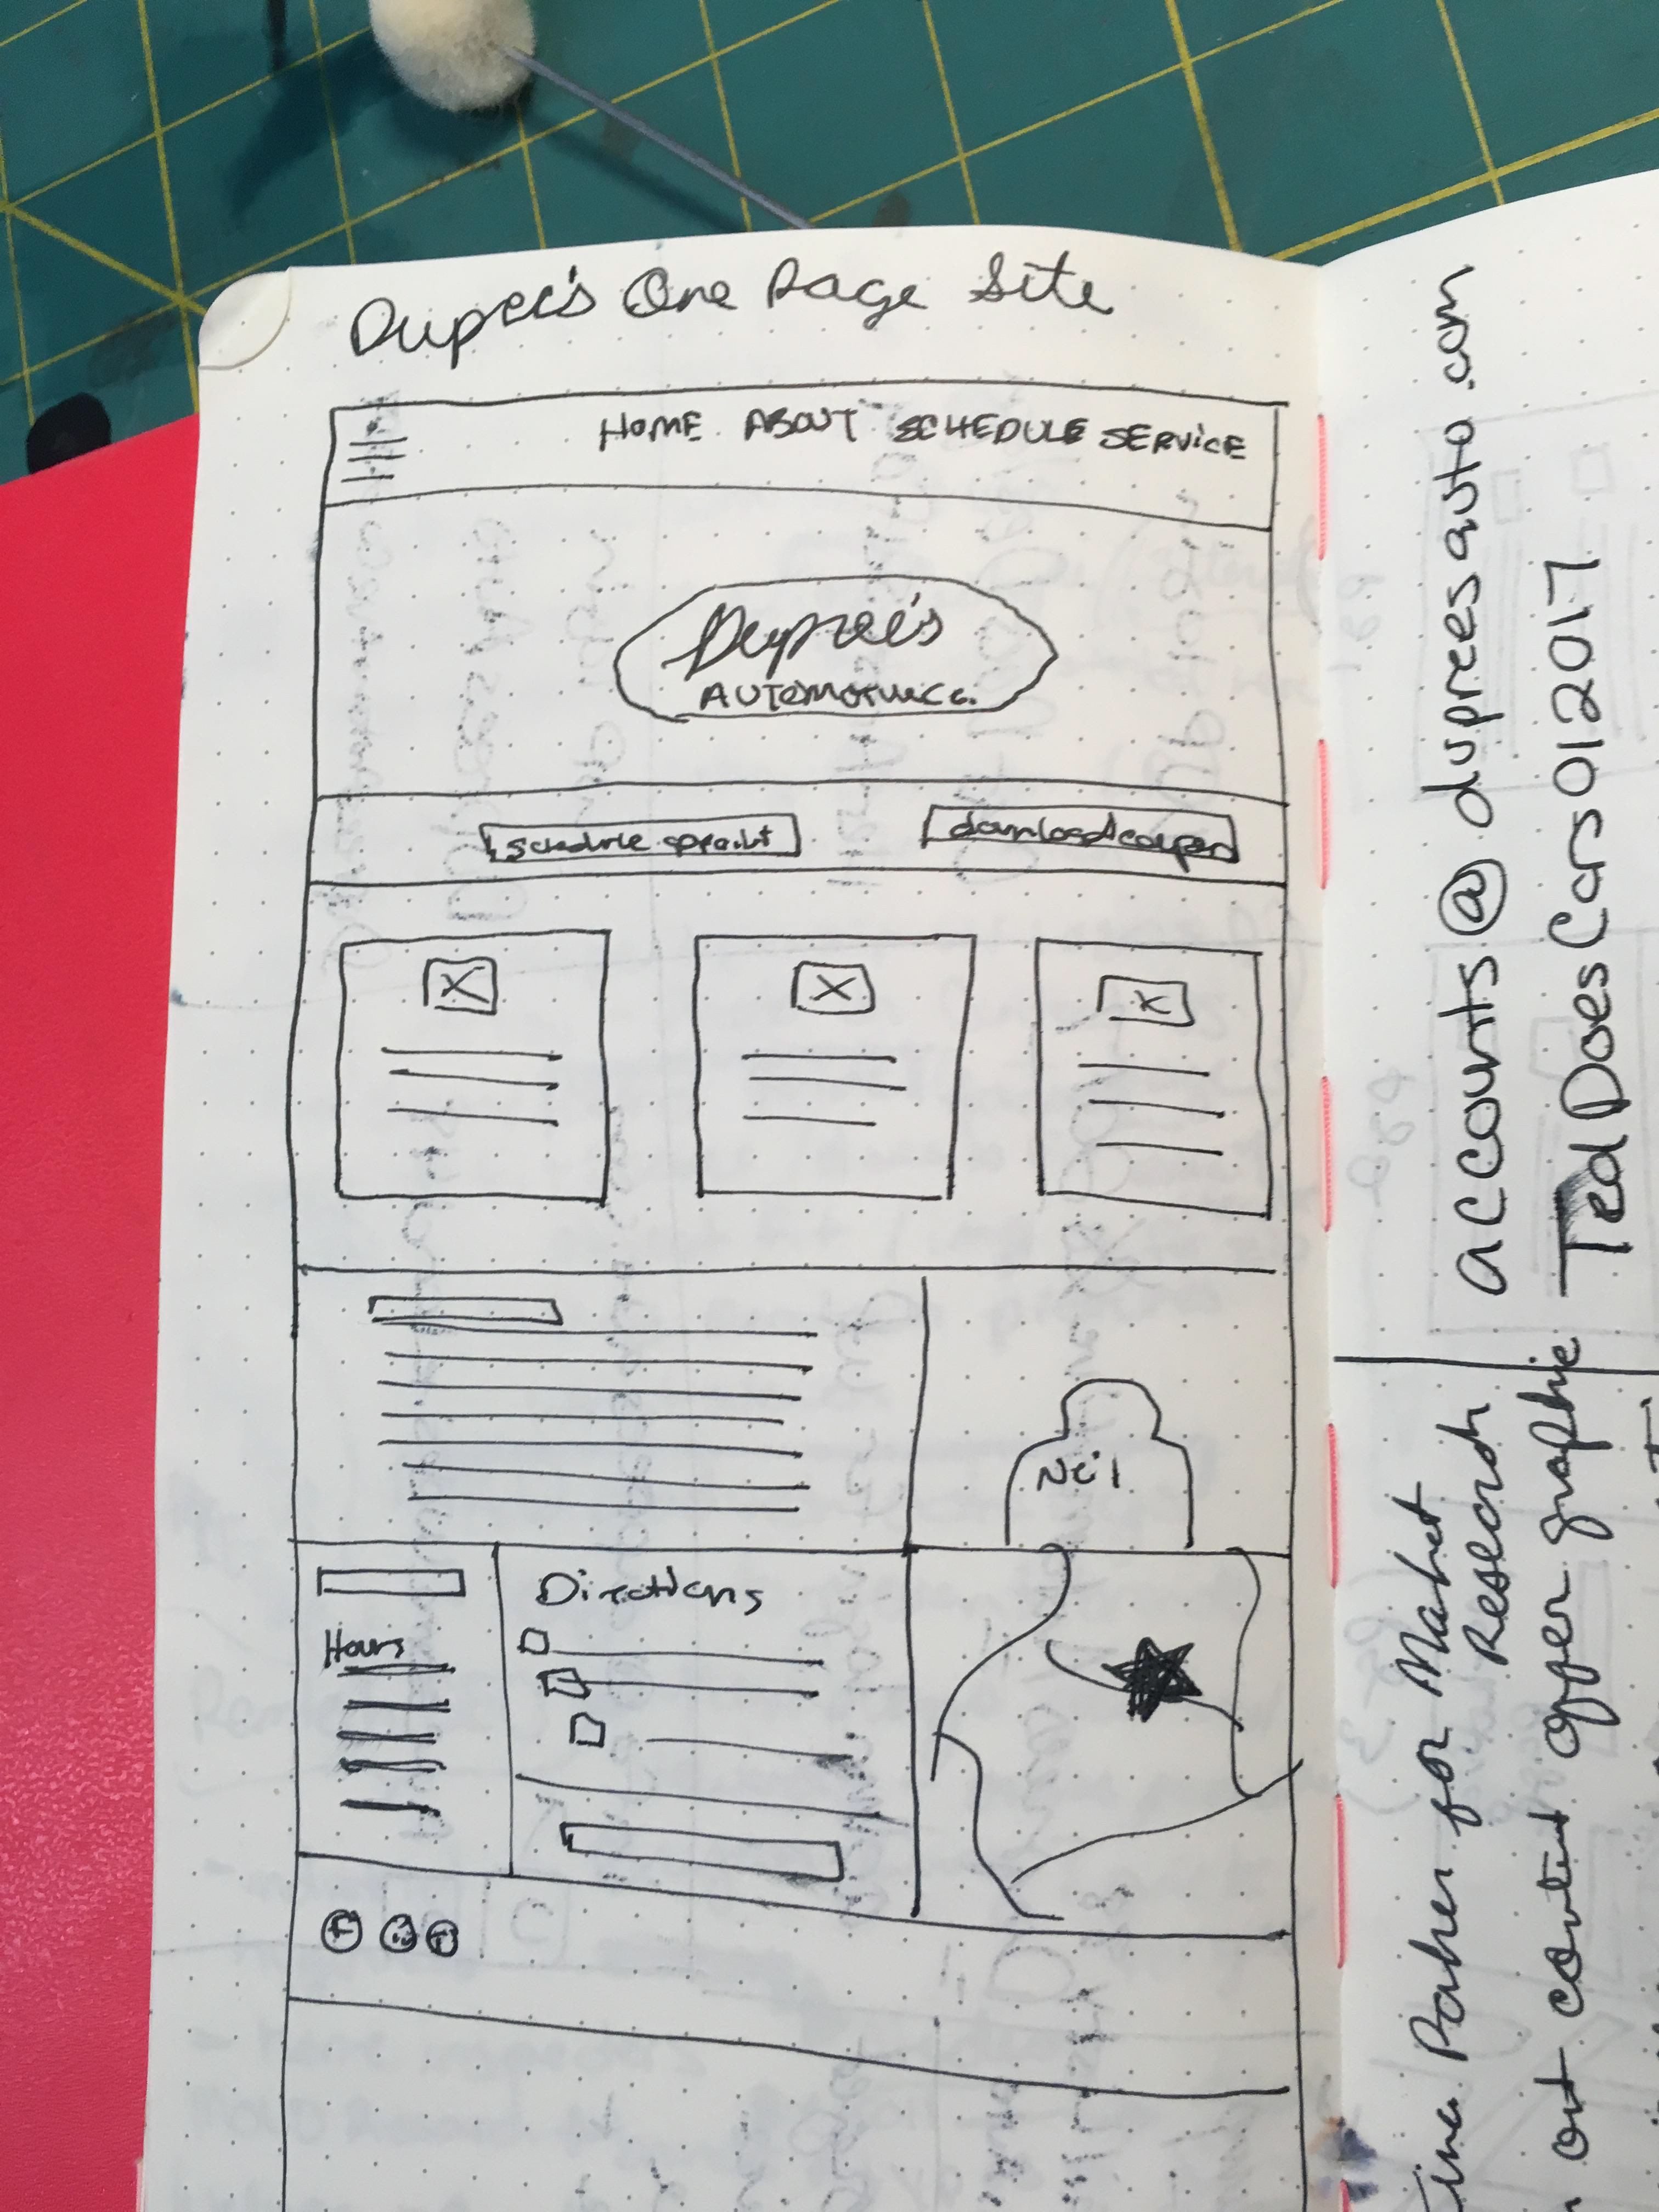 Dupree's One Page Site
HOME ABOUT SCHEDULE SERVICE
Dupree's
AUTOMOTIVE
schedule
download coupon
Neil
Directions
Hours
accounts@dupreesauto.com
TedDoesCars012017
for Market
Research
out content offer graphic